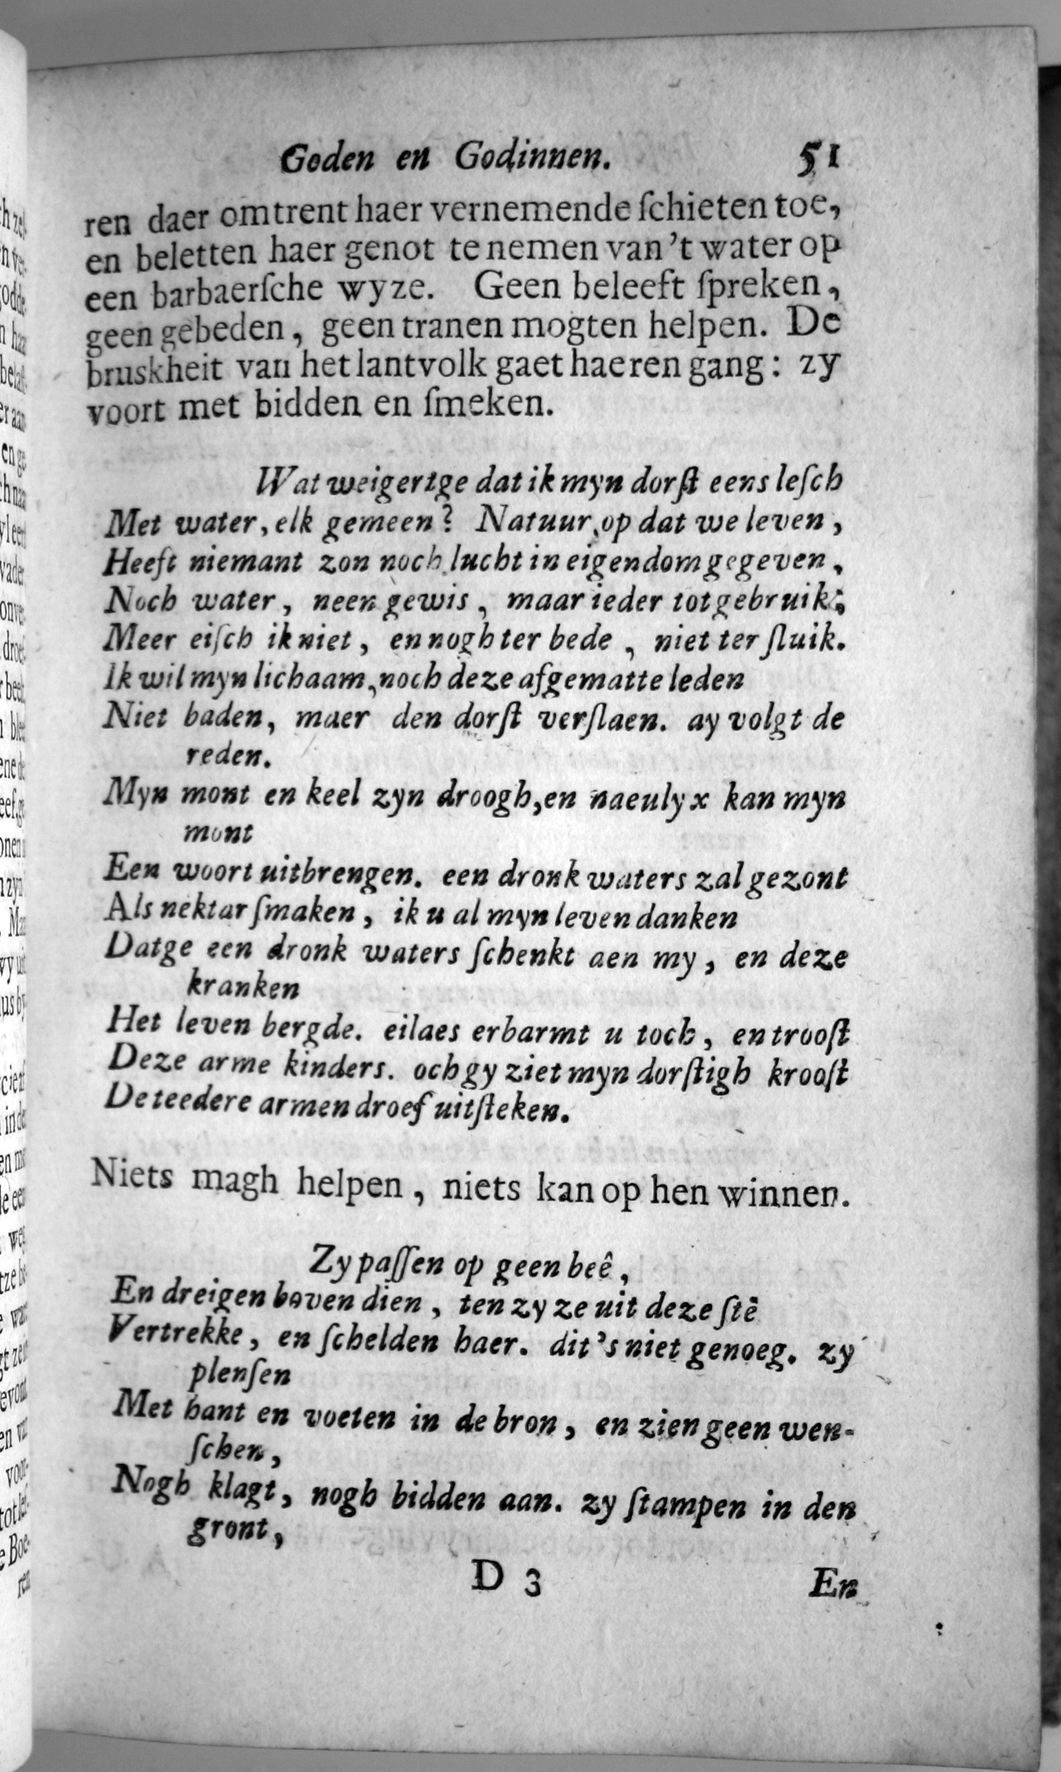 Goden en Godinnen. 51
ren daer omtrent haer vernemende ſchieten toe,
en beletten haer genot te nemen van 't water op
een barbaerſche wyze. Geen beleeft ſpreken,
geen gebeden, geen tranen mogten helpen. De
bruskheit van het lantvolk gaet haeren gang: zy
voort met bidden en ſmeken.
Wat weigertge dat ik myn dorſt eens leſch
Met water, elk gemeen? Natuur, op dat we leven,
Heeft niemant zon noch lucht in eigendom gegeven,
Noch water, neen gewis, maar ieder tot gebruik;
Meer eiſch ik niet, en nogh ter bede, niet ter ſluik.
Ik wil myn lichaam, noch deze afgematte leden
Niet baden, maer den dorſt verſlaen. ay volgt de
reden.
Myn mont en keel zyn droogh, en naeulyx kan myn
mont
Een woort uitbrengen. een dronk waters zal gezont
Als nektar ſmaken, ik u al myn leven danken
Datge een dronk waters ſchenkt aen my, en deze
kranken
Het leven bergde. eilaes erbarmt u toch, en trooſt
Deze arme kinders. och gy ziet myn dorſtigh krooſt
De teedere armen droef uitſteken.
Niets magh helpen, niets kan op hen winnen.
Zy paſſen op geen beê,
En dreigen boven dien, ten zy ze uit deze ſtê
Vertrekke, en ſchelden haer. dit 's niet genoeg. zy
plenſen
Met hant en voeten in de bron, en zien geen wen-
ſchen,
Nogh klagt, nogh bidden aan. zy ſtampen in den
gront,
D 3 En